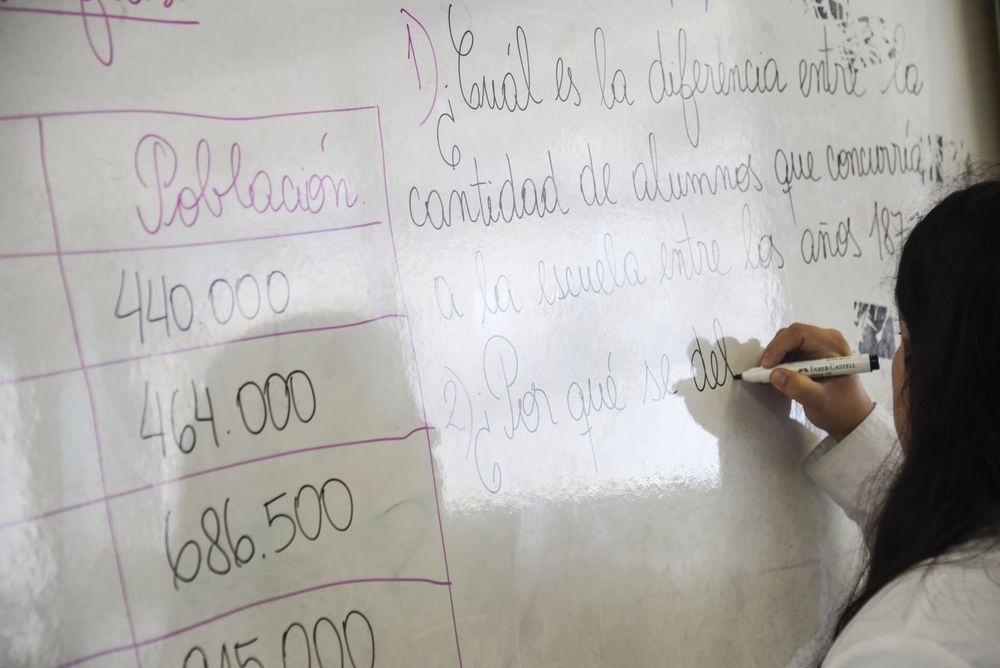 Población.
440.000
464.000
686.500
1) ¿Cuál es la diferencia entre la
cantidad de alumnos que concurría
a la escuela entre los años
2) ¿Por qué se del
FABER-CASTELL